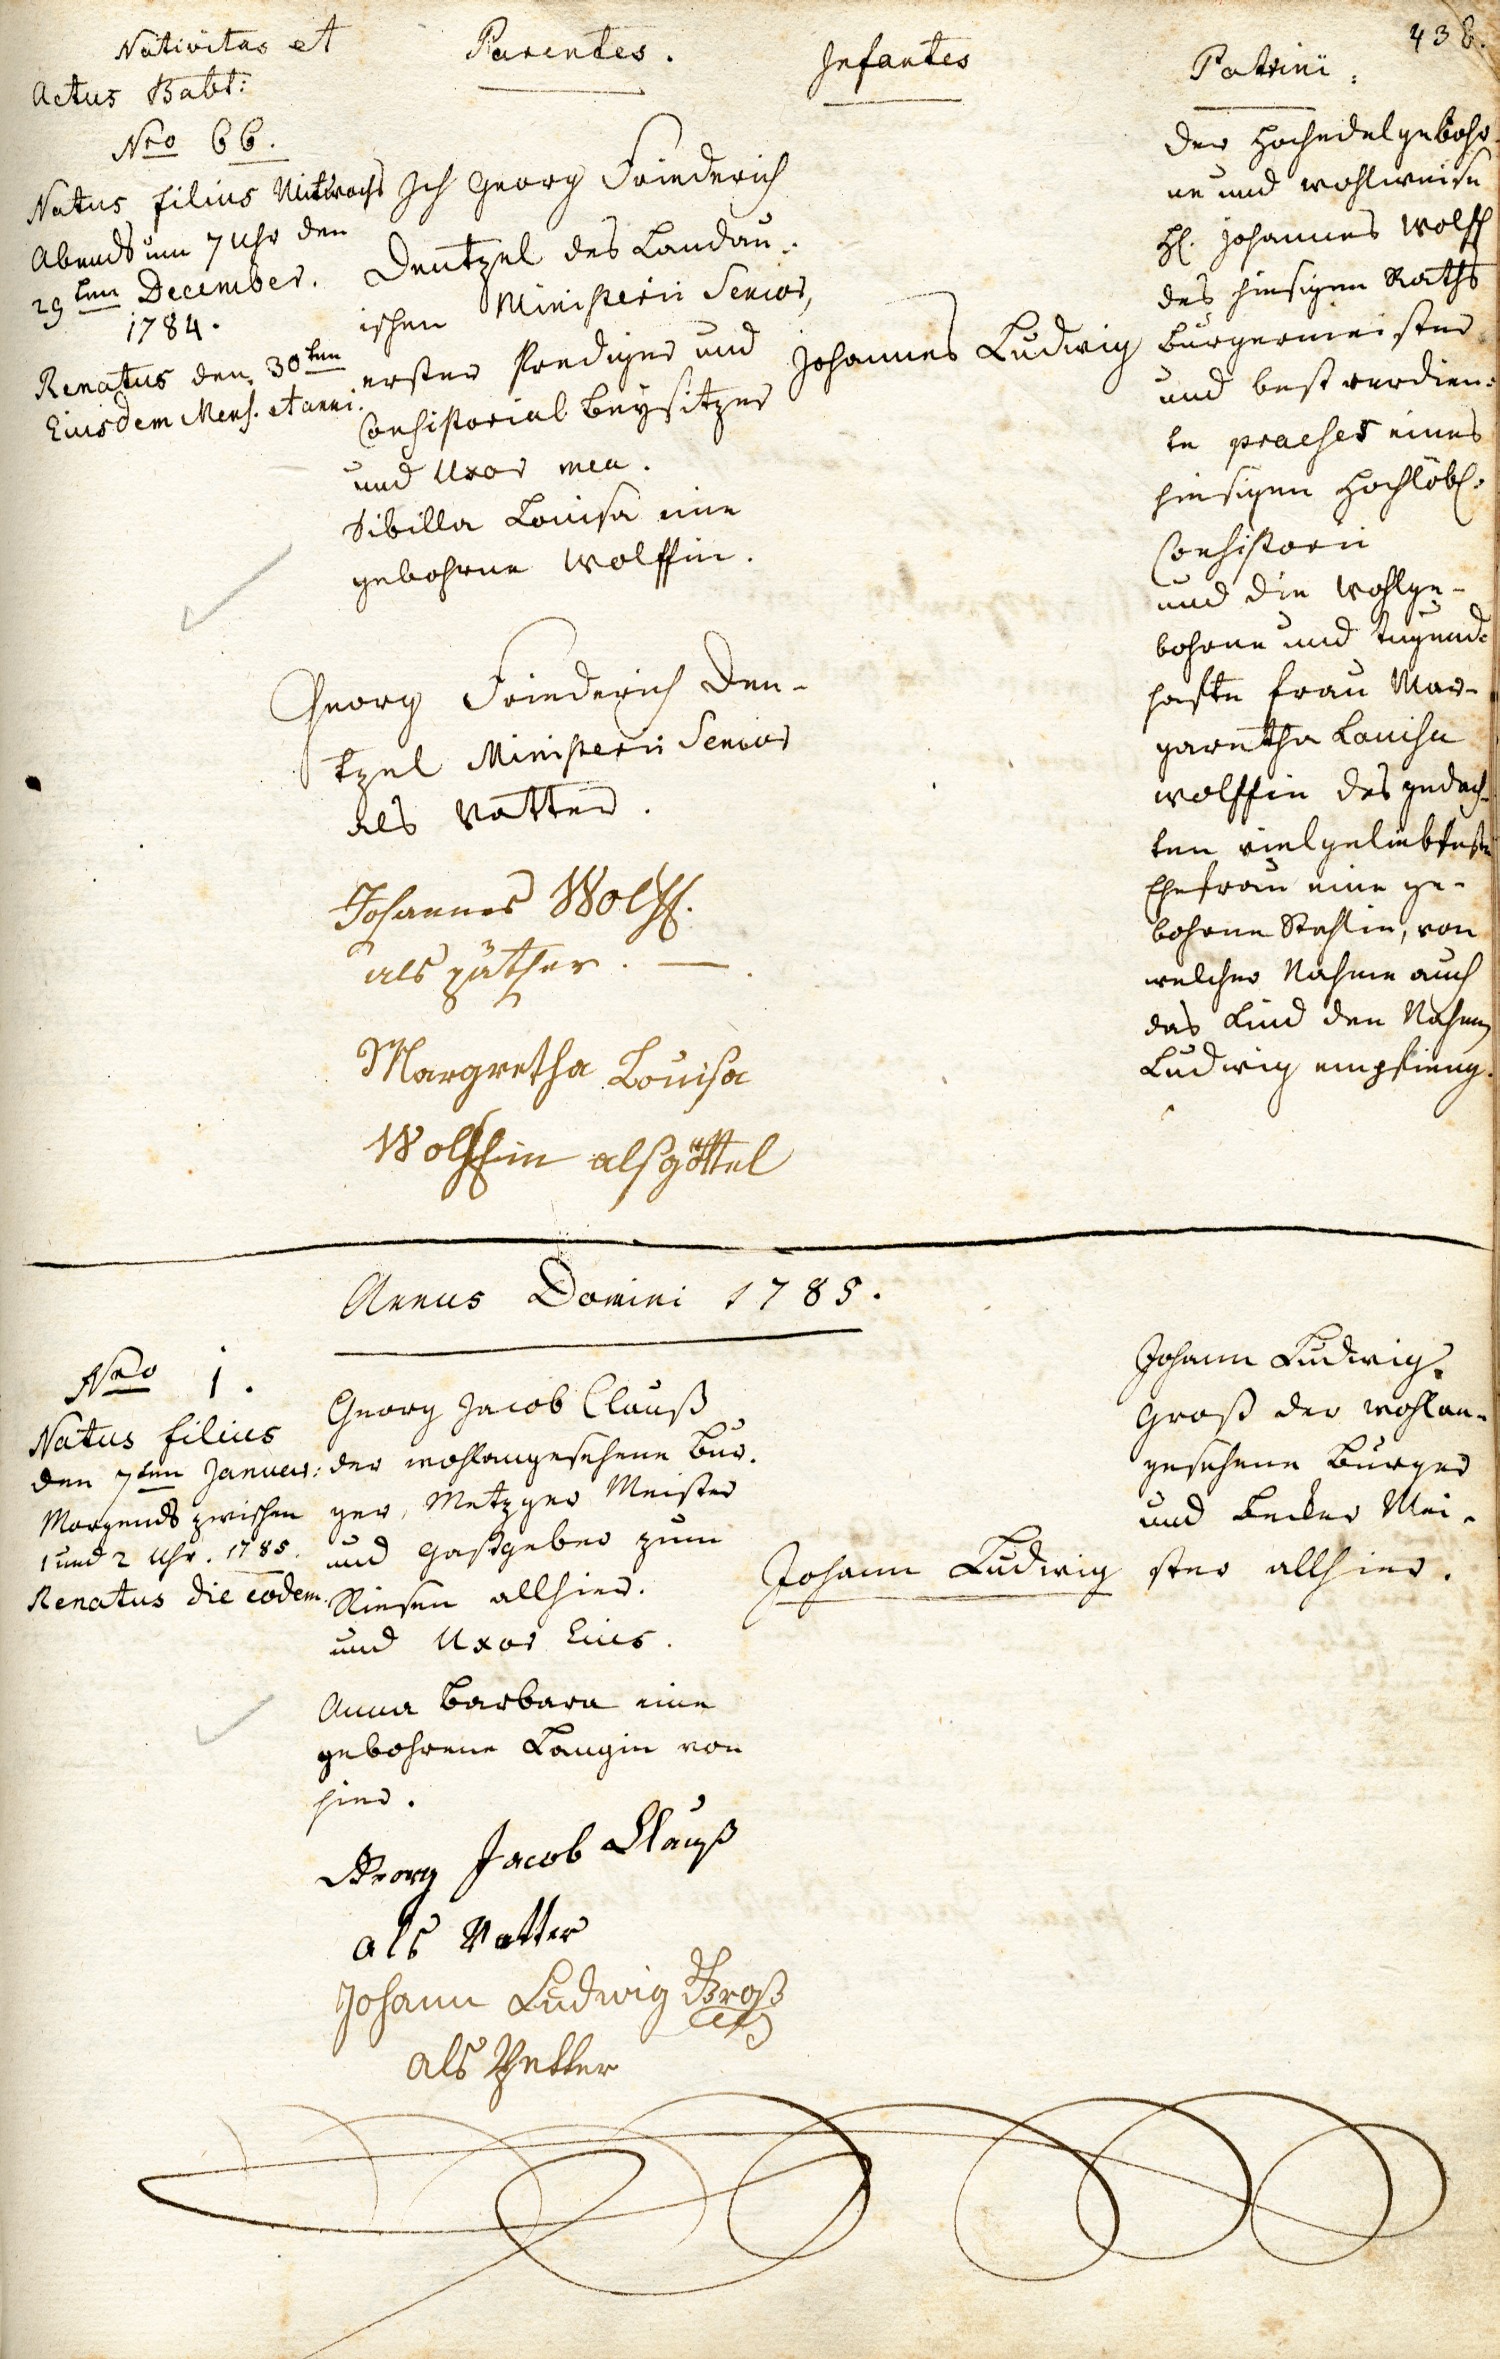 438.
Nativitas et
Actus Babt:
Parentes.
Infantes
Patrini:
Nro 66.
Natus filius Mittwochs
Abends um 7 Uhr den
29ten December.
1784.
Renatus den 30ten
Eiusdem Mens. et anni.
Ich Georg Friederich
Dentzel des Landau-
ischen Ministerii Senior,
erster Prediger und
Consistorial Beysitzer
und Uxor mea.
Sibilla Louisa eine
gebohrne Wolffin.
Johannes Ludwig
der Hochedelgebohr-
ne und wohlweise
H. Johannes Wolff
des hiesigen Raths
Burgermeister
und best verdien-
te praeses eines
hiesigen Hochlöbl.
Consistorii
und die Wohlge-
bohrne und tugend-
hafte Frau Mar-
garetha Louisa
Wolffin des gedach-
ten vielgeliebteste
Ehefrau eine ge-
bohrne Stahlin, von
welcher Nahme auch
das Kind den Nahmen
Ludwig empfieng.
Georg Friederich Den-
tzel Ministerii Senior
als Vatter.
Johannes Wolff.
als päther.
Margretha Louisa
Wolffin als göttel
Annus Domini 1785.
Nro 1.
Natus filius
den 7ten Januar:
Morgends zwischen
1 und 2 Uhr. 1785.
Renatus die eodem.
Georg Jacob Clauß
der wohlangesehene Bur-
ger, Metzger Meister
und Gastgeber zum
Riesen allhier.
und Uxor Eius.
Anna Barbara eine
gebohrene Langin von
hier.
Johann Ludwig
Johann Ludwig
Groß der wohlan-
gesehene Burger
und Becker Mei-
ster allhier.
Georg Jacob Clauß
als Vatter
Johann Ludwig Groß
als Petter